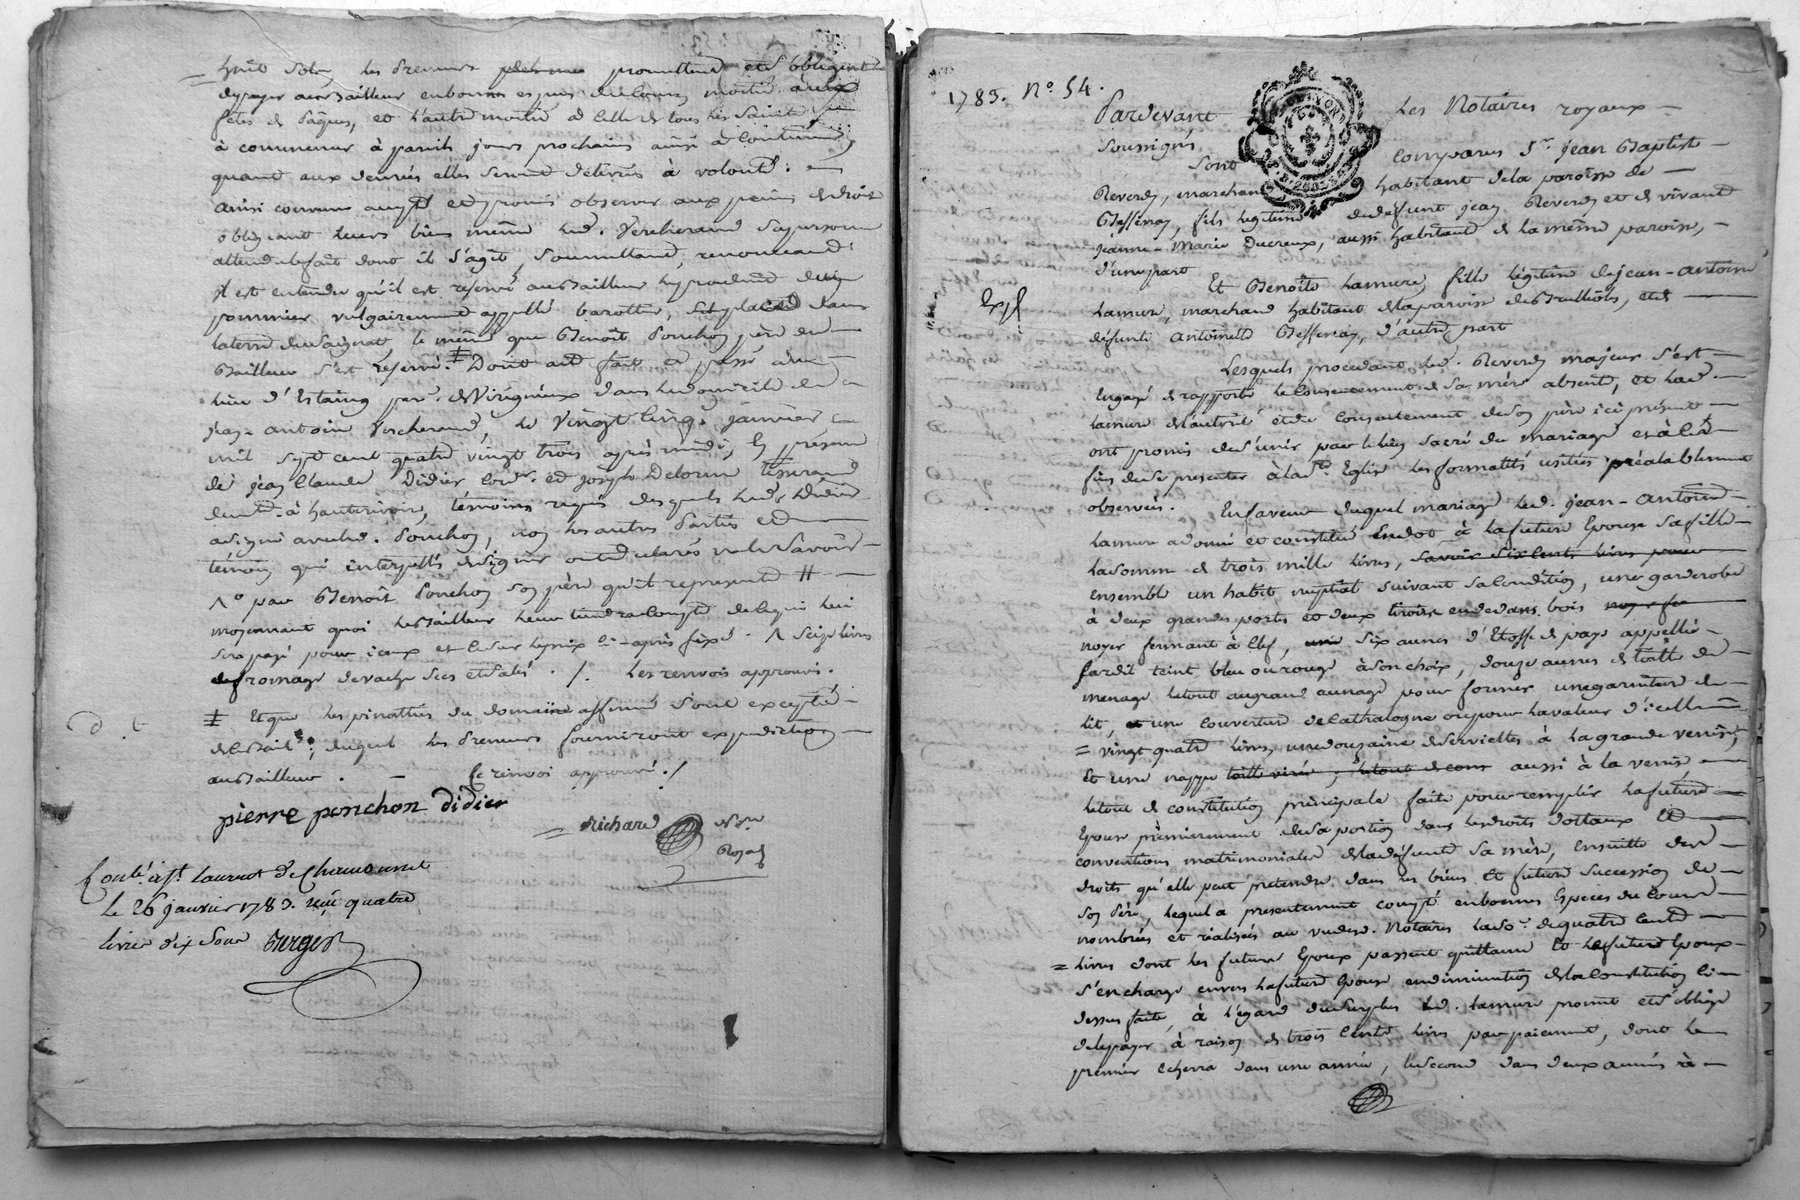 huit sols, les preneurs promettent et s'obligent
de payer au bailleur en bonnes especes de cours moitié aux
fetes de Pâques, et l'autre moitié à celle de tous les Saints
à commencer à pareils jours prochains ainsi à continuer,
quant aux denrées elles seront délivrés à volonté.
ainsi convenu accepté et promis observer aux peines de droit
obligeant leurs biens même led. Vercherand sa personne
attendu le fait dont il s'agit, soumettant, renonceant
il est entendu qu'il est reservé au bailleur le produit du
pommier vulgairement appellé barotter, et placé dans
la terre du Saignat le même que Benoit Ponchon père du
Bailleur s'est reservé. ‡ Dont acte fait et passé au
lieu d'Estaing par. de Virignieux dans le domicile de
jean-antoine Vercherand, le vingt cinq janvier
mil sept cent quatre vingt trois après midi, En presence
de jean Claude Didier cord.r et joseph Delorme tisserand
demt. à hauterivoire, témoins requis desquels led. Didier
a signé avec led. Ponchon, non les autres parties et
témoin qui interpellés de signer ont declarés ne le savoir
par Benoît Ponchon son père qu'il represente #
moyennant quoi le bailleur leur tiendra compte de ce qui lui
sera payé pour iceux et ce sur le prix ci-après fixé. ^ seize livres
de fromage de vache secs et salés ./. les renvois approuvés.
‡ Et que les pinattées du domaine affermé sont excepté
du bail; duquel les preneurs fourniront expedition
au bailleur. - Ce renvoi approuvé ./
pierre ponchon didier
Richard N.re
Royal
Conlé à St. laurent de Chamousset
le 26 janvier 1783. reçu quatre
livres dix sous Verger
1783. N.o 54.
Pardevant les Notaires royaux
soussignés
Sont comparus S.r jean Baptiste
Reverdy, marchand habitant de la paroisse de
Bessenay, fils legitime de defunt jean Reverdy et de vivante
jeanne-Marie Ducreux, aussi habitant de la même paroisse,
d'une part
Et Benoite Lamure, fille légitime de jean-antoine
Lamure, marchand habitant de la paroisse des Brulliols, et de
défunte Antoinette Bessenay, d'autre part
Lesquels procedant led. Reverdy majeur s'est
engagé de rapporter le consentement de sa mère absente, et lad.
Lamure de l'autorité et du consentement de son père ici présent
ont promis de s'unir par le lien sacré du mariage et à les
fins de se presenter à la S.te Eglise les formalités usitées préalablement
observées. En faveur duquel mariage led. jean-antoine
Lamure a donné et constitué en dot à la future Epouse sa fille
la somme de trois mille livres, savoir six cents livres pour
ensemble un habit nuptial suivant sa condition, une garderobe
à deux grandes portes et deux tiroirs en dedans, bois noyer fer
noyer fermant à clef, une six aunes d'Etoffe de pays appellé
fardit teint bleu ou rouge à son choix, douze aunes de toille de
menage le tout au grand aunage pour former une garniture de
lit, et une couverture de Cathalogne ou pour la valeur d'icelle
= vingt quatre livres, une douzaine de serviettes à la grande venise,
Et une nappe aussi à la venise
le tout de constitution principale faite pour remplir la future
Epouse premierement de sa portion dans les droits dottaux et
conventions matrimoniales de la défunte sa mère, ensuitte des
droits qu'elle peut pretendre dans les biens et future succession de
son père, lequel a presentement compté en bonnes Especes du cours
nombrées et réalisées au vu desd. Notaires la so.e de quatre cents
= livres dont les futurs Epoux passent quittance Et le futur Epoux
s'en charge envers la future Epouse en diminution de la constitution ci-
dessus faite, à l'égard du surplus led. Lamure promet et s'oblige
de le payer à raison de trois cents livres par paiement, dont le
premier écherra dans une année, le second dans deux années à